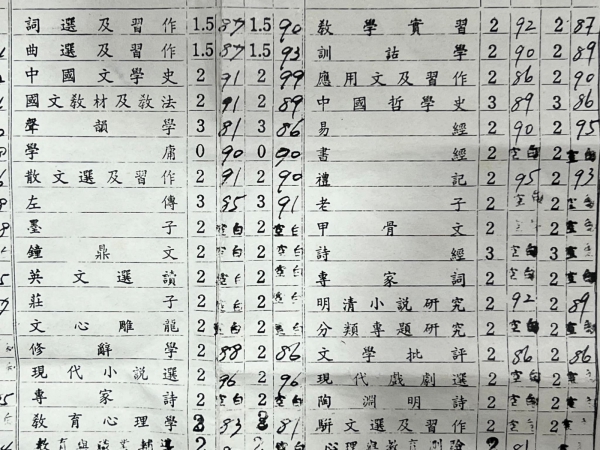 詞選及習作 1.5 87 1.5 90 教學實習 2 92 2 87
曲選及習作 1.5 87 1.5 93 訓詁學 2 90 2 89
中國文學史 2 91 2 99 應用文及習作 2 86 2 90
國文教材及教法 2 91 2 89 中國哲學史 3 89 3 86
聲韻學 3 81 3 86 易經 2 90 2 95
學庸 0 90 0 90 書經 2 空白 2 空白
散文選及習作 2 91 2 90 禮記 2 95 2 93
左傳 3 95 3 91 老子 2 空白 2 空白
墨子 2 空白 2 空白 甲骨文 2 空白 2 空白
鐘鼎文 2 空白 2 空白 詩經 3 空白 3 空白
英文選讀 2 空白 2 空白 專家詞 2 空白 2 空白
莊子 2 空白 2 空白 明清小說研究 2 92 2 89
文心雕龍 2 空白 2 空白 分類專題研究 2 空白 2 空白
修辭學 2 88 2 86 文學批評 2 86 2 86
現代小說選 2 96 2 96 現代戲劇選 2 空白 2 空白
專家詩 2 空白 2 空白 陶淵明詩 2 空白 2 空白
教育心理學 2 83 2 81 駢文選及習作 2 空白 2 空白
2 2 空白 心理與教育測驗 2 91